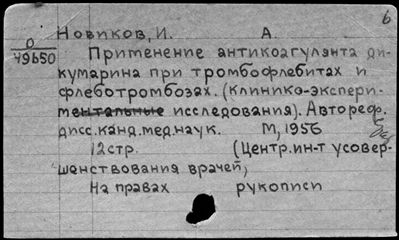 б
Новиков, И. А.
О
49650
Применение антикоагулянта ди-
кумарина при тромбофлебитах и
флеботромбозах. (клинико-экспери-
ментальные исследования). Автореф.
дисс. канд. мед. наук. М, 1956
12 стр. (Центр. ин-т усовер-
шенствования врачей,
На правах рукописи